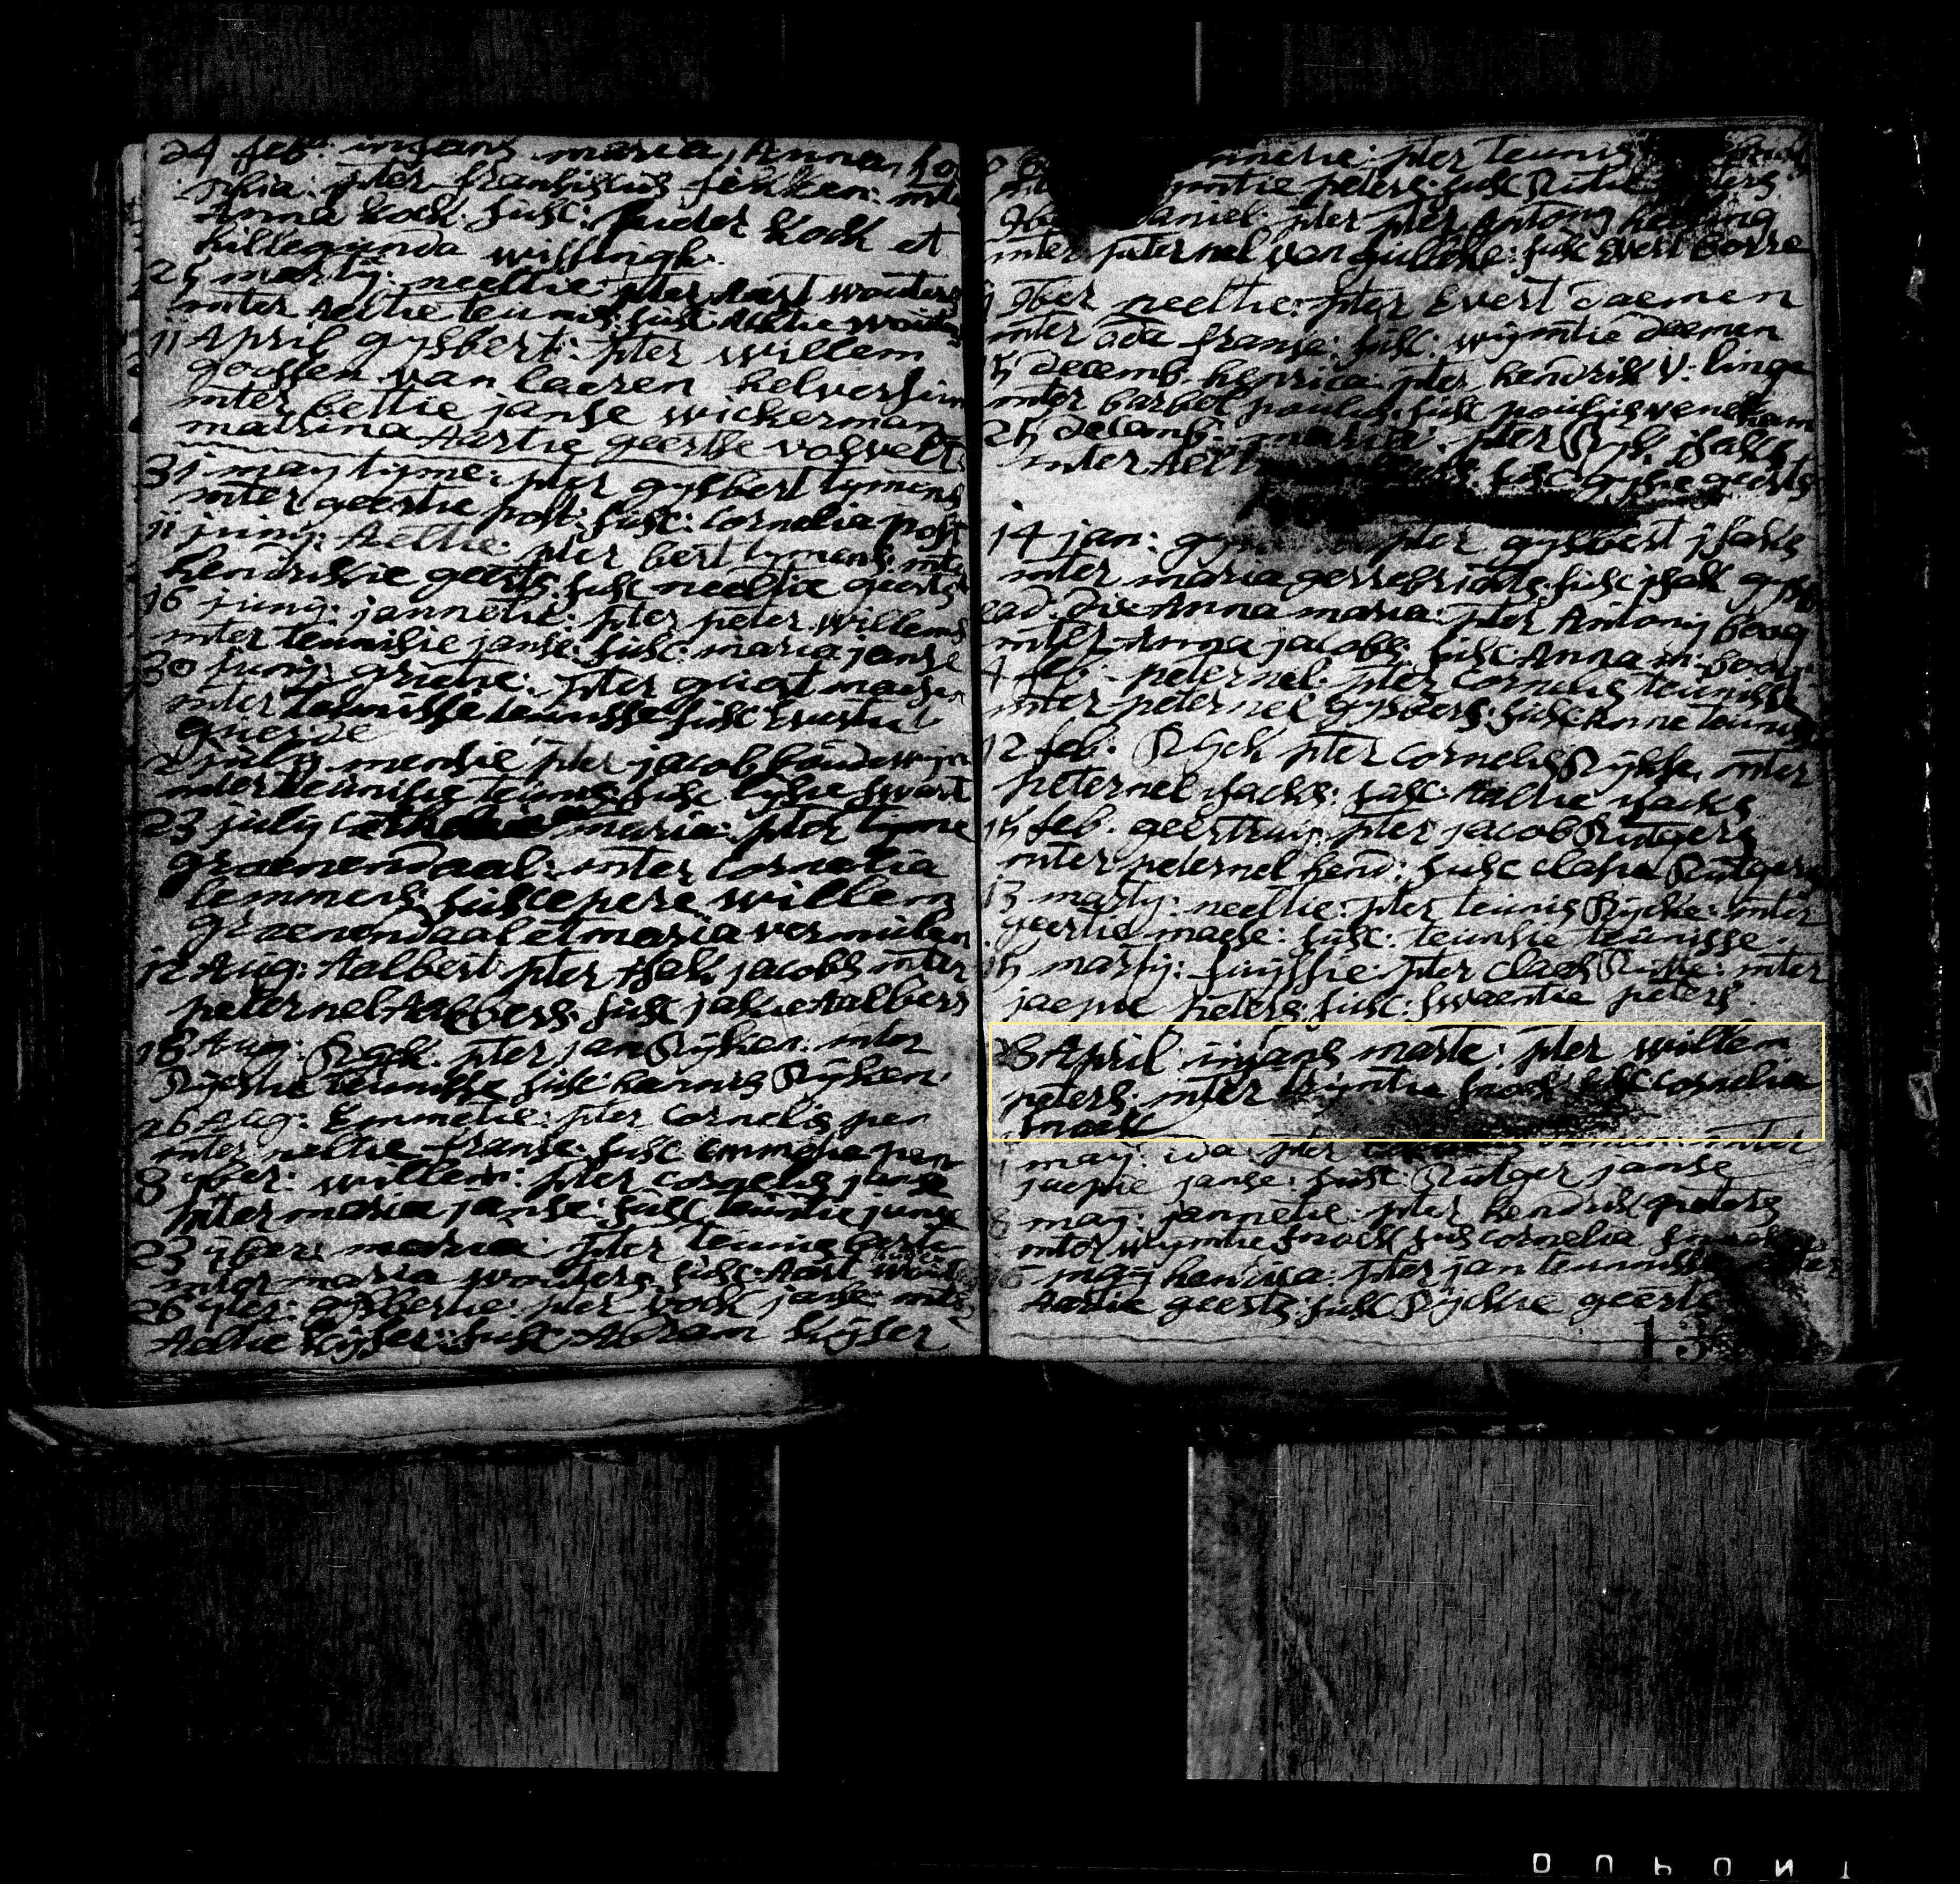 24 feb: infans maria, Anna, so
phia: pter fransiscus finken: mter
Anna kock. susc: pieter kock et
hillegunda wissingh.
25 marty: neeltie: pter Aart wouters
mter Aeltie teunis: susc Aeltie wouters
11 April gysbert: pter willem
goossen van laeren helversum
mter bettie janse wickerman
matrina Aartie geerse valvelt
31 may tyme: pter gysbert tymens
mter geertie post: susc: cornelia post
11 juny: Aeltie: pter bert tymens mter
hendrikie geerts: susc neeltie geerts
16 juny: jannetie: pter peter willems
mter teunisie janse: susc: maria janse
30 juny: grietie: pter giert maesen
mter teunisse teunisse susc evertie
grierde
2 july mensie pter jacob boudewyn
mter teunisie teunis susc lysie swart
23 july maria: pter tyme
groenendaal: mter cornelia
lemmens suscepere willem
groenendaal et maria vermeulen
12 Aug: Aalbert pter Isak jacobs mter
peternel Aalbers: susc jakie Aalbers
18 Aug: Ryck. pter jan Ryken: mter
Ryckie teunisse susc hannis Ryken.
26 Aug: Emmetie: pter cornelis pen
mter neltie franse: susc emmetie pen
8 9ber: willem: pter cornelis janse
mter maria janse: susc teuntie janse
23 9ber: maria: pter teunis berte
mter maria wouters: susc: Aart wout
26 9ber: gysbertie: pter cock janse mter
Aeltie kyser: susc Abram kyser
nnetie: pter teunis
mtie peters: susc Rutu peters
9b aniel: pter pter Antony
mter peternel van gulike: susc Evert borre
9ber neeltie: pter Evert daemen
mter oda franse: susc: wymtie daemen
15 decemb. henrica: pter hendrik v: linge
mter barbel poulus: susc poulus venekam
25 decemb: maria: pter Ryk isaks
mter Aelt susc gysie geerts
14 jan: pter gysbert isaks
mter maria gerrebrants susc isak gysb
ead. die Anna maria: pter Antony boog
mter Anna jacobs: susc Anna m: boog
4 feb: peternel: pter cornelis teunisse
mter peternel gysbers: susc Anne teunis
12 feb: Ryck pter cornelis Rykse, mter
peternel isacks: susc: Aaltie isacks
15 feb. geertruy: pter jacob Rutgers
mter peternel hend: susc clasie Rutgers
13 marty: neeltie: pter teunis Rycke: mter
geertie maese: susc: teunsie teunisse.
15 marty: suyssie: pter claes Rutte: mter
jaepie peters: susc: swaentie peters.
28 April infans marte: pter willem
peters: mter wymtie snoek susc cornelia
snoek
1 may: ida pter mter
jaepie janse: susc Rutger janse
8 may: jannetie: pter hendrik peters
mter wymtie snoek susc cornelia
may henrica: pter jan teunisse
Aartie geerts: susc Ryckie geerts